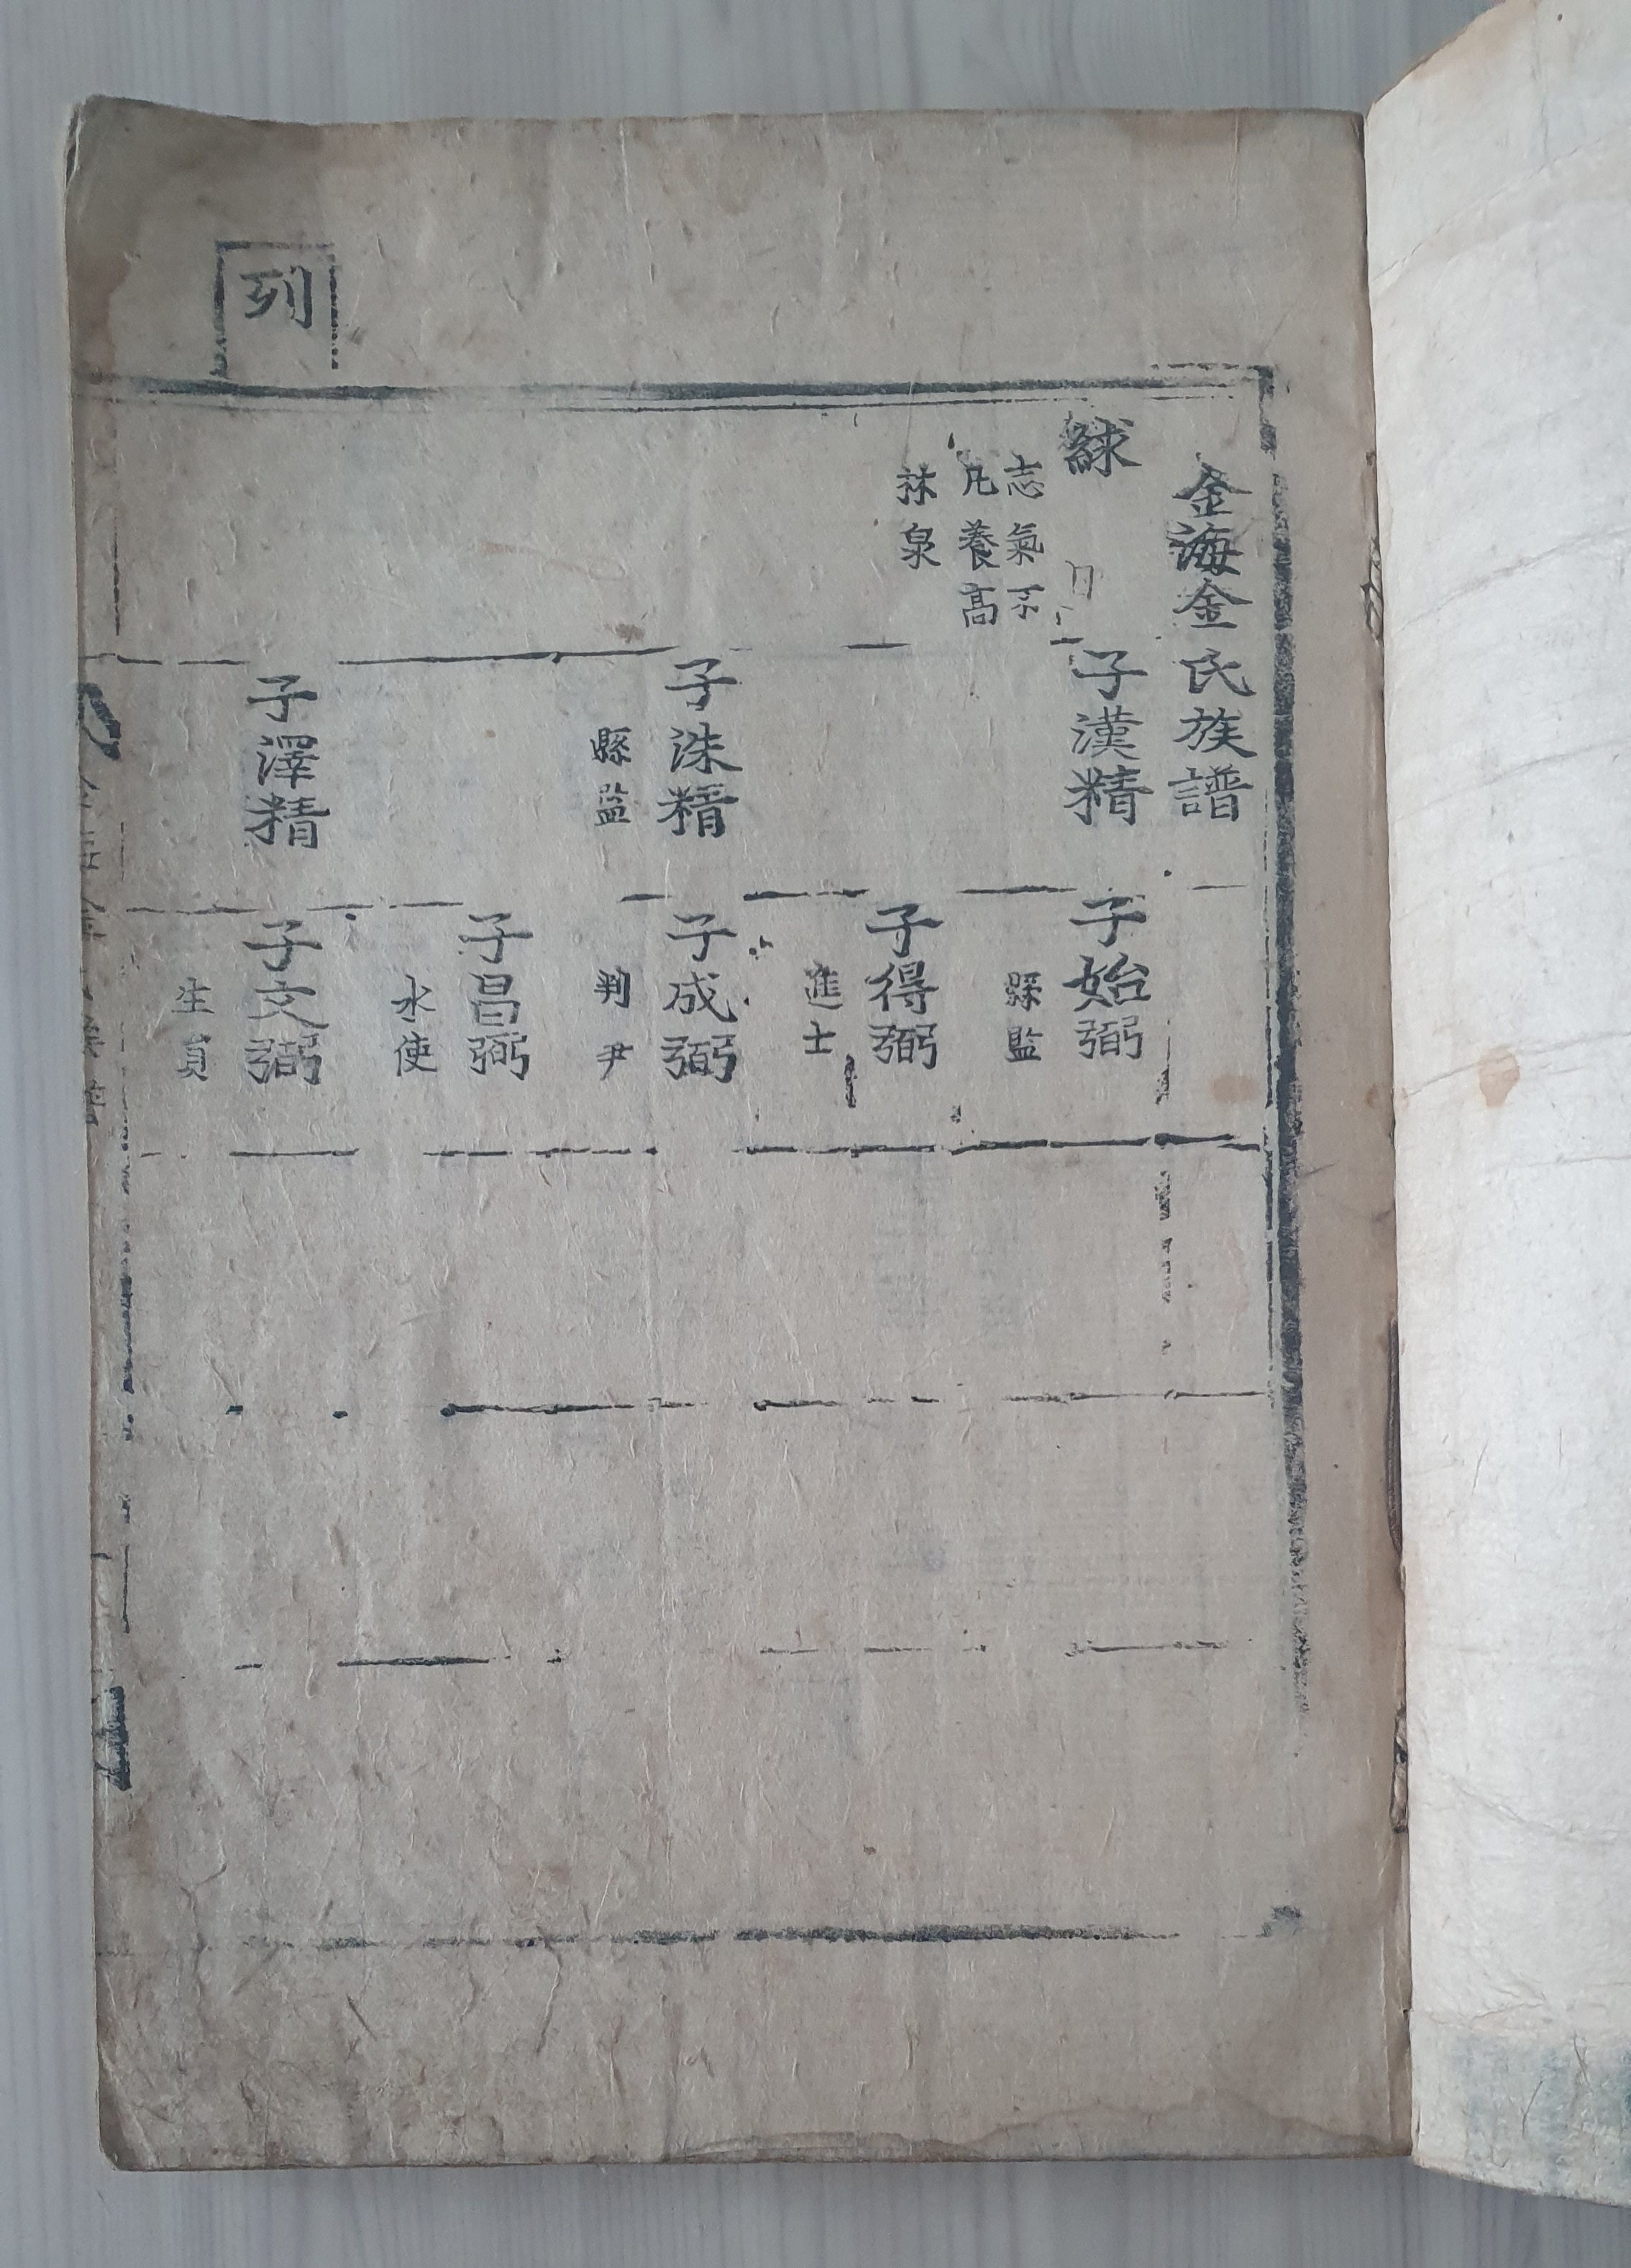 列
金海金氏族譜
絿
志氣不
凡養高
林泉
子漢精
子洙精
縣監
子澤精
子始弼
縣監
子得弼
進士
子成弼
判尹
子昌弼
水使
子文弼
生員